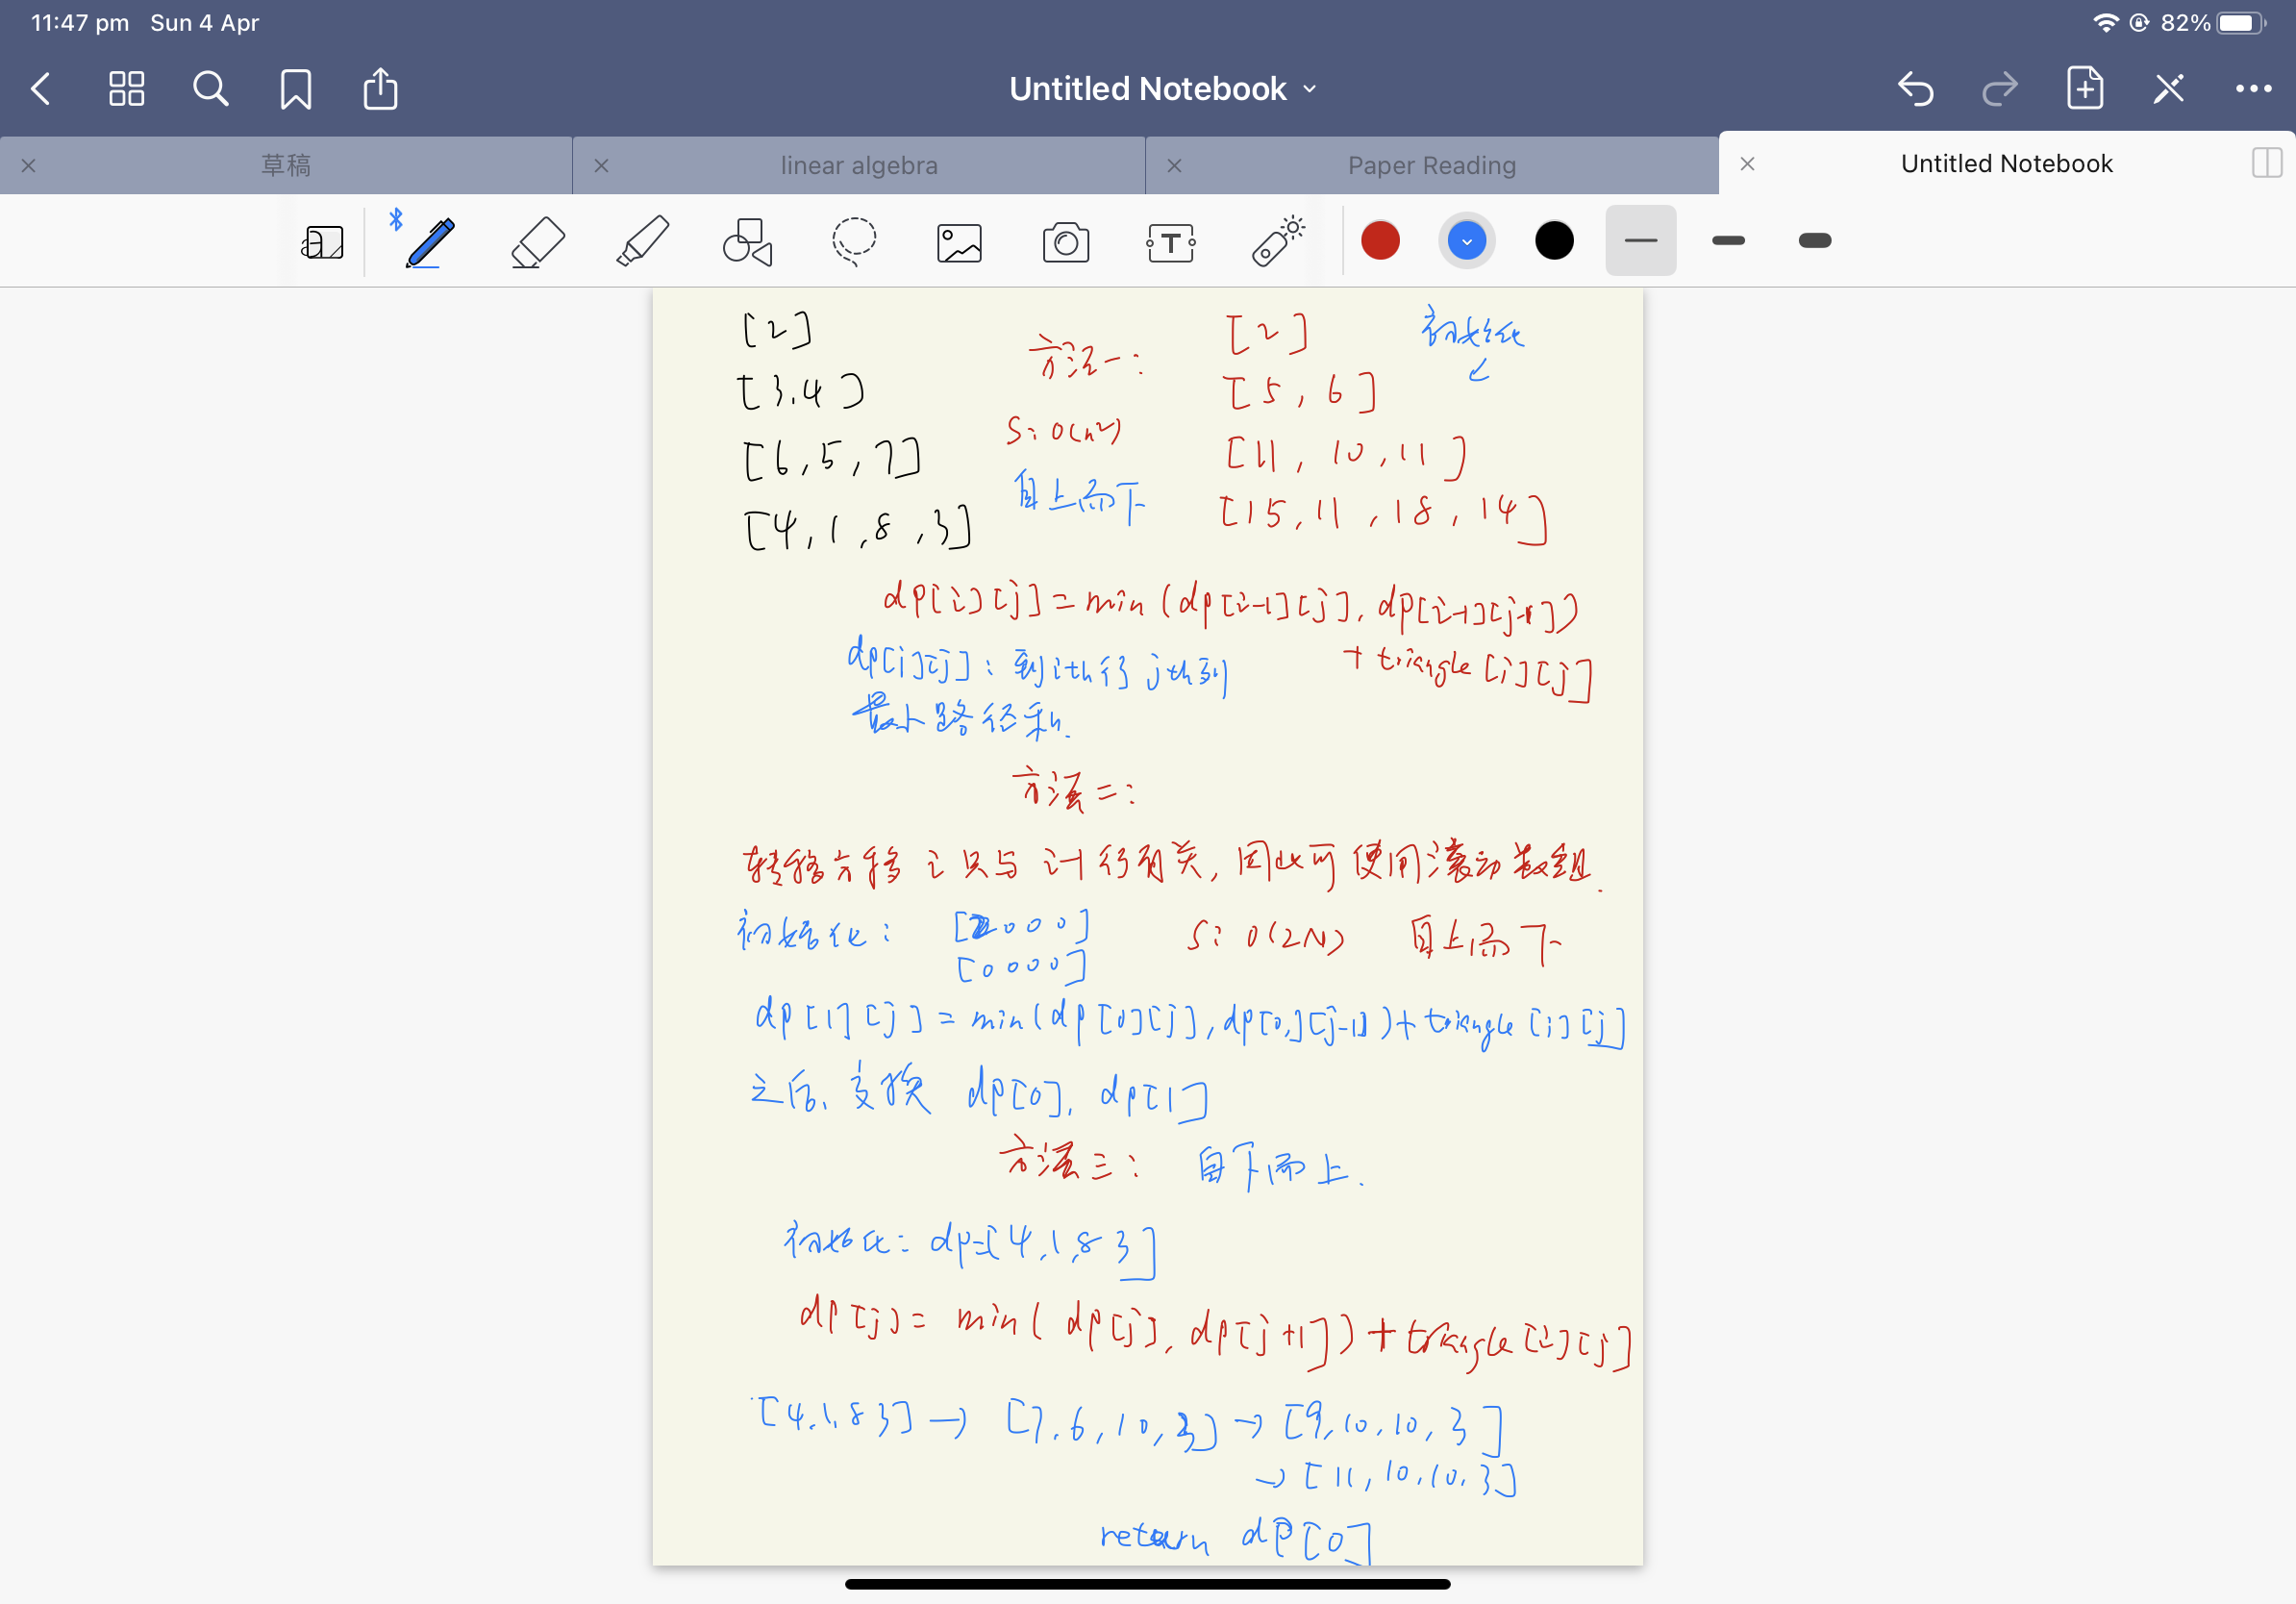 11:47 pm Sun 4 Apr 82%
Untitled Notebook
草稿 linear algebra Paper Reading Untitled Notebook
T
[2] 方法一: [2] 初始化
[3,4] [5, 6]
S: O(n²)
[6,5,7] [11, 10, 11]
自上而下
[4,1,8,3] [15,11,18,14]
dp[i][j]=min(dp[i-1][j], dp[i-1][j-1])
+ triangle[i][j]
dp[i][j]: 到ith行jth列
最小路径和.
方法二:
转移方移 i 只与 i-1 行有关, 因此可使用滚动数组.
初始化: [2 0 0 0] S: O(2N) 自上而下
[0 0 0 0]
dp[1][j]=min(dp[0][j], dp[0,][j-1])+triangle[i][j]
之后, 交换 dp[0], dp[1]
方法三: 自下而上.
初始化: dp=[4,1,8 3]
dp[j]= min( dp[j], dp[j+1])+triangle[i][j]
[4,1,8 3] → [7,6,10,3] → [9,10,10,3]
→ [11,10,10,3]
return dp[0]